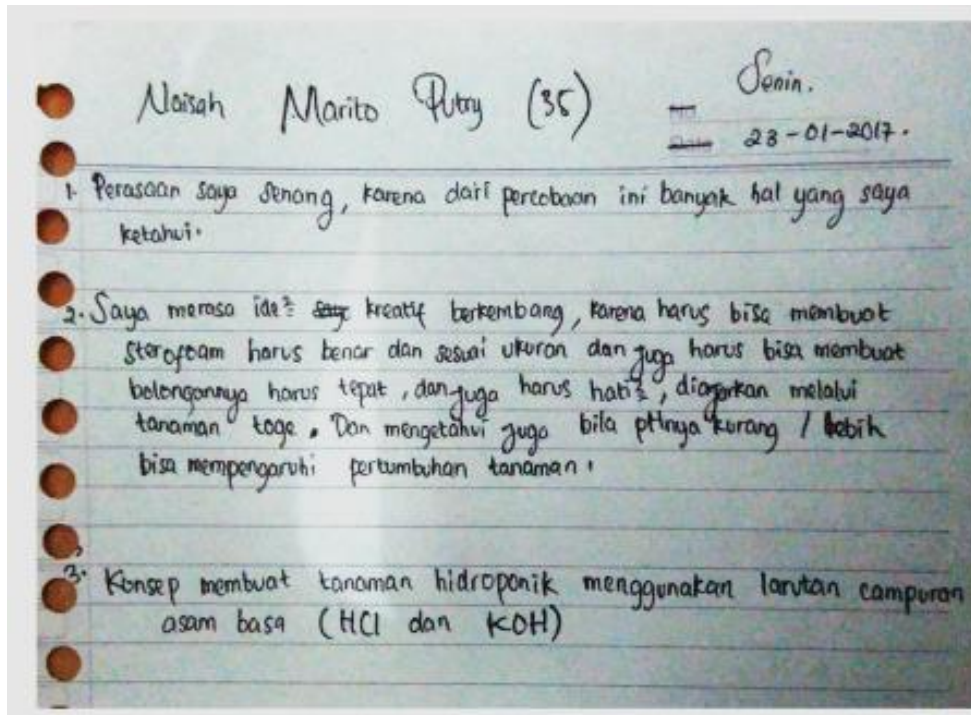 Naisah Marito Putry (35)
Senin.
No
Date 23-01-2017.
1. Perasaan saya senang, karena dari percobaan ini banyak hal yang saya
ketahui.
2. Saya merasa ide² saya kreatif berkembang, karena harus bisa membuat
sterofoam harus benar dan sesuai ukuran dan juga harus bisa membuat
bolongannya harus tepat, dan juga harus hati², diajarkan melalui
tanaman toge. Dan mengetahui juga bila pHnya kurang / lebih
bisa mempengaruhi pertumbuhan tanaman.
3. Konsep membuat tanaman hidroponik menggunakan larutan campuran
asam basa (HCl dan KOH)